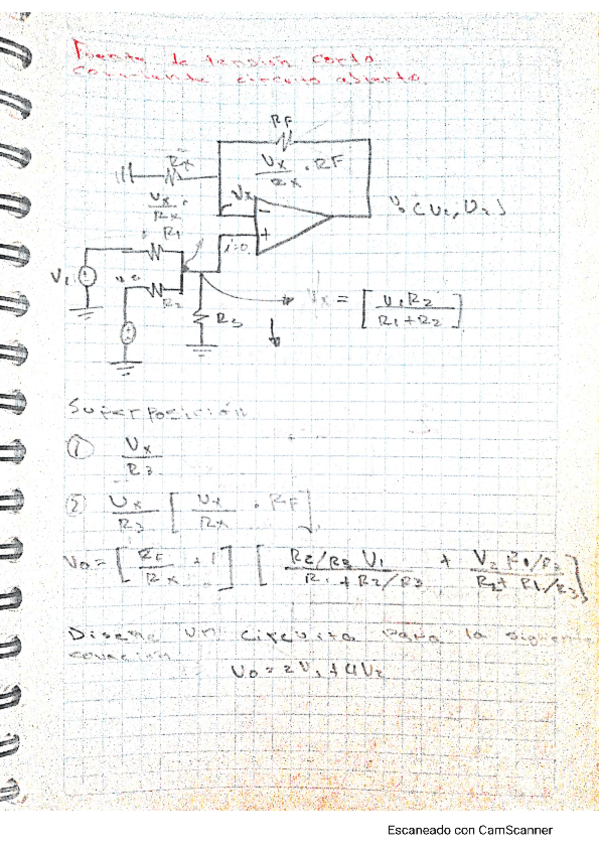 Fuente de tensión corto
corriente circuito abierto
RF
Rx
Vx/Rx · RF
Vx/Rx
Vx
Vo (V1, V2)
R1
i=0
V1
R2
R3
Vx = [V1R2/R1+R2]
Superposición
① Vx/R3
② Vx/R3 [Vx/Rx · RF]
Vo = [RF/Rx + 1] [R2/R3 V1/R1+R2/R3 + V2 R1/R3/R2+R1/R3]
Diseñe un circuito para la siguiente
ecuación
Vo = 2V1 + 4V2
Escaneado con CamScanner